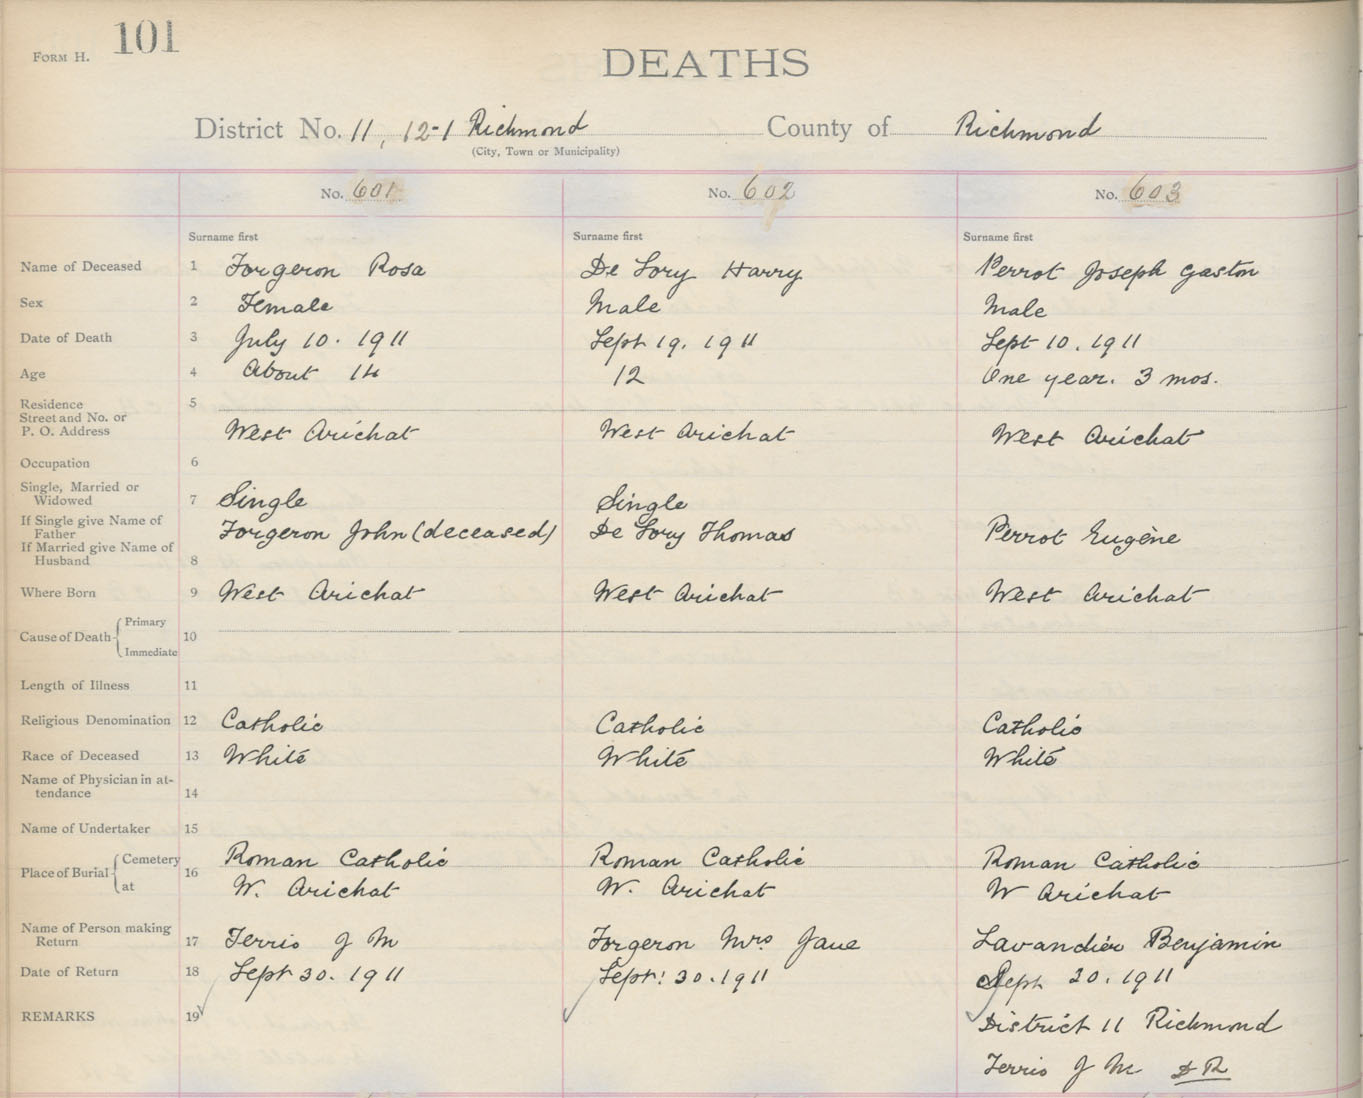 FORM H. 101
DEATHS
District No. 11, 12-1 Richmond County of Richmond
(City, Town or Municipality)
No. 601 No. 602 No. 603
Surname first Surname first Surname first
Name of Deceased 1 Forgeron Rosa De Lory Harry Perrot Joseph Gaston
Sex 2 Female Male Male
Date of Death 3 July 10. 1911 Sept 19. 1911 Sept 10. 1911
Age 4 About 14 12 One year. 3 mos.
Residence 5
Street and No. or
P. O. Address West Arichat West Arichat West Arichat
Occupation 6
Single, Married or
Widowed 7 Single Single
If Single give Name of
Father Forgeron John (deceased) De Lory Thomas Perrot Eugène
If Married give Name of
Husband 8
Where Born 9 West Arichat West Arichat West Arichat
Primary
Cause of Death 10
Immediate
Length of Illness 11
Religious Denomination 12 Catholic Catholic Catholic
Race of Deceased 13 White White White
Name of Physician in at-
tendance 14
Name of Undertaker 15
Cemetery Roman Catholic Roman Catholic Roman Catholic
Place of Burial 16
at W. Arichat W. Arichat W Arichat
Name of Person making
Return 17 Terrio J M Forgeron Mrs Jane Lavandier Benjamin
Date of Return 18 Sept 30. 1911 Sept. 30. 1911 Sept 20. 1911
REMARKS 19 District 11 Richmond
Terrio J M DR